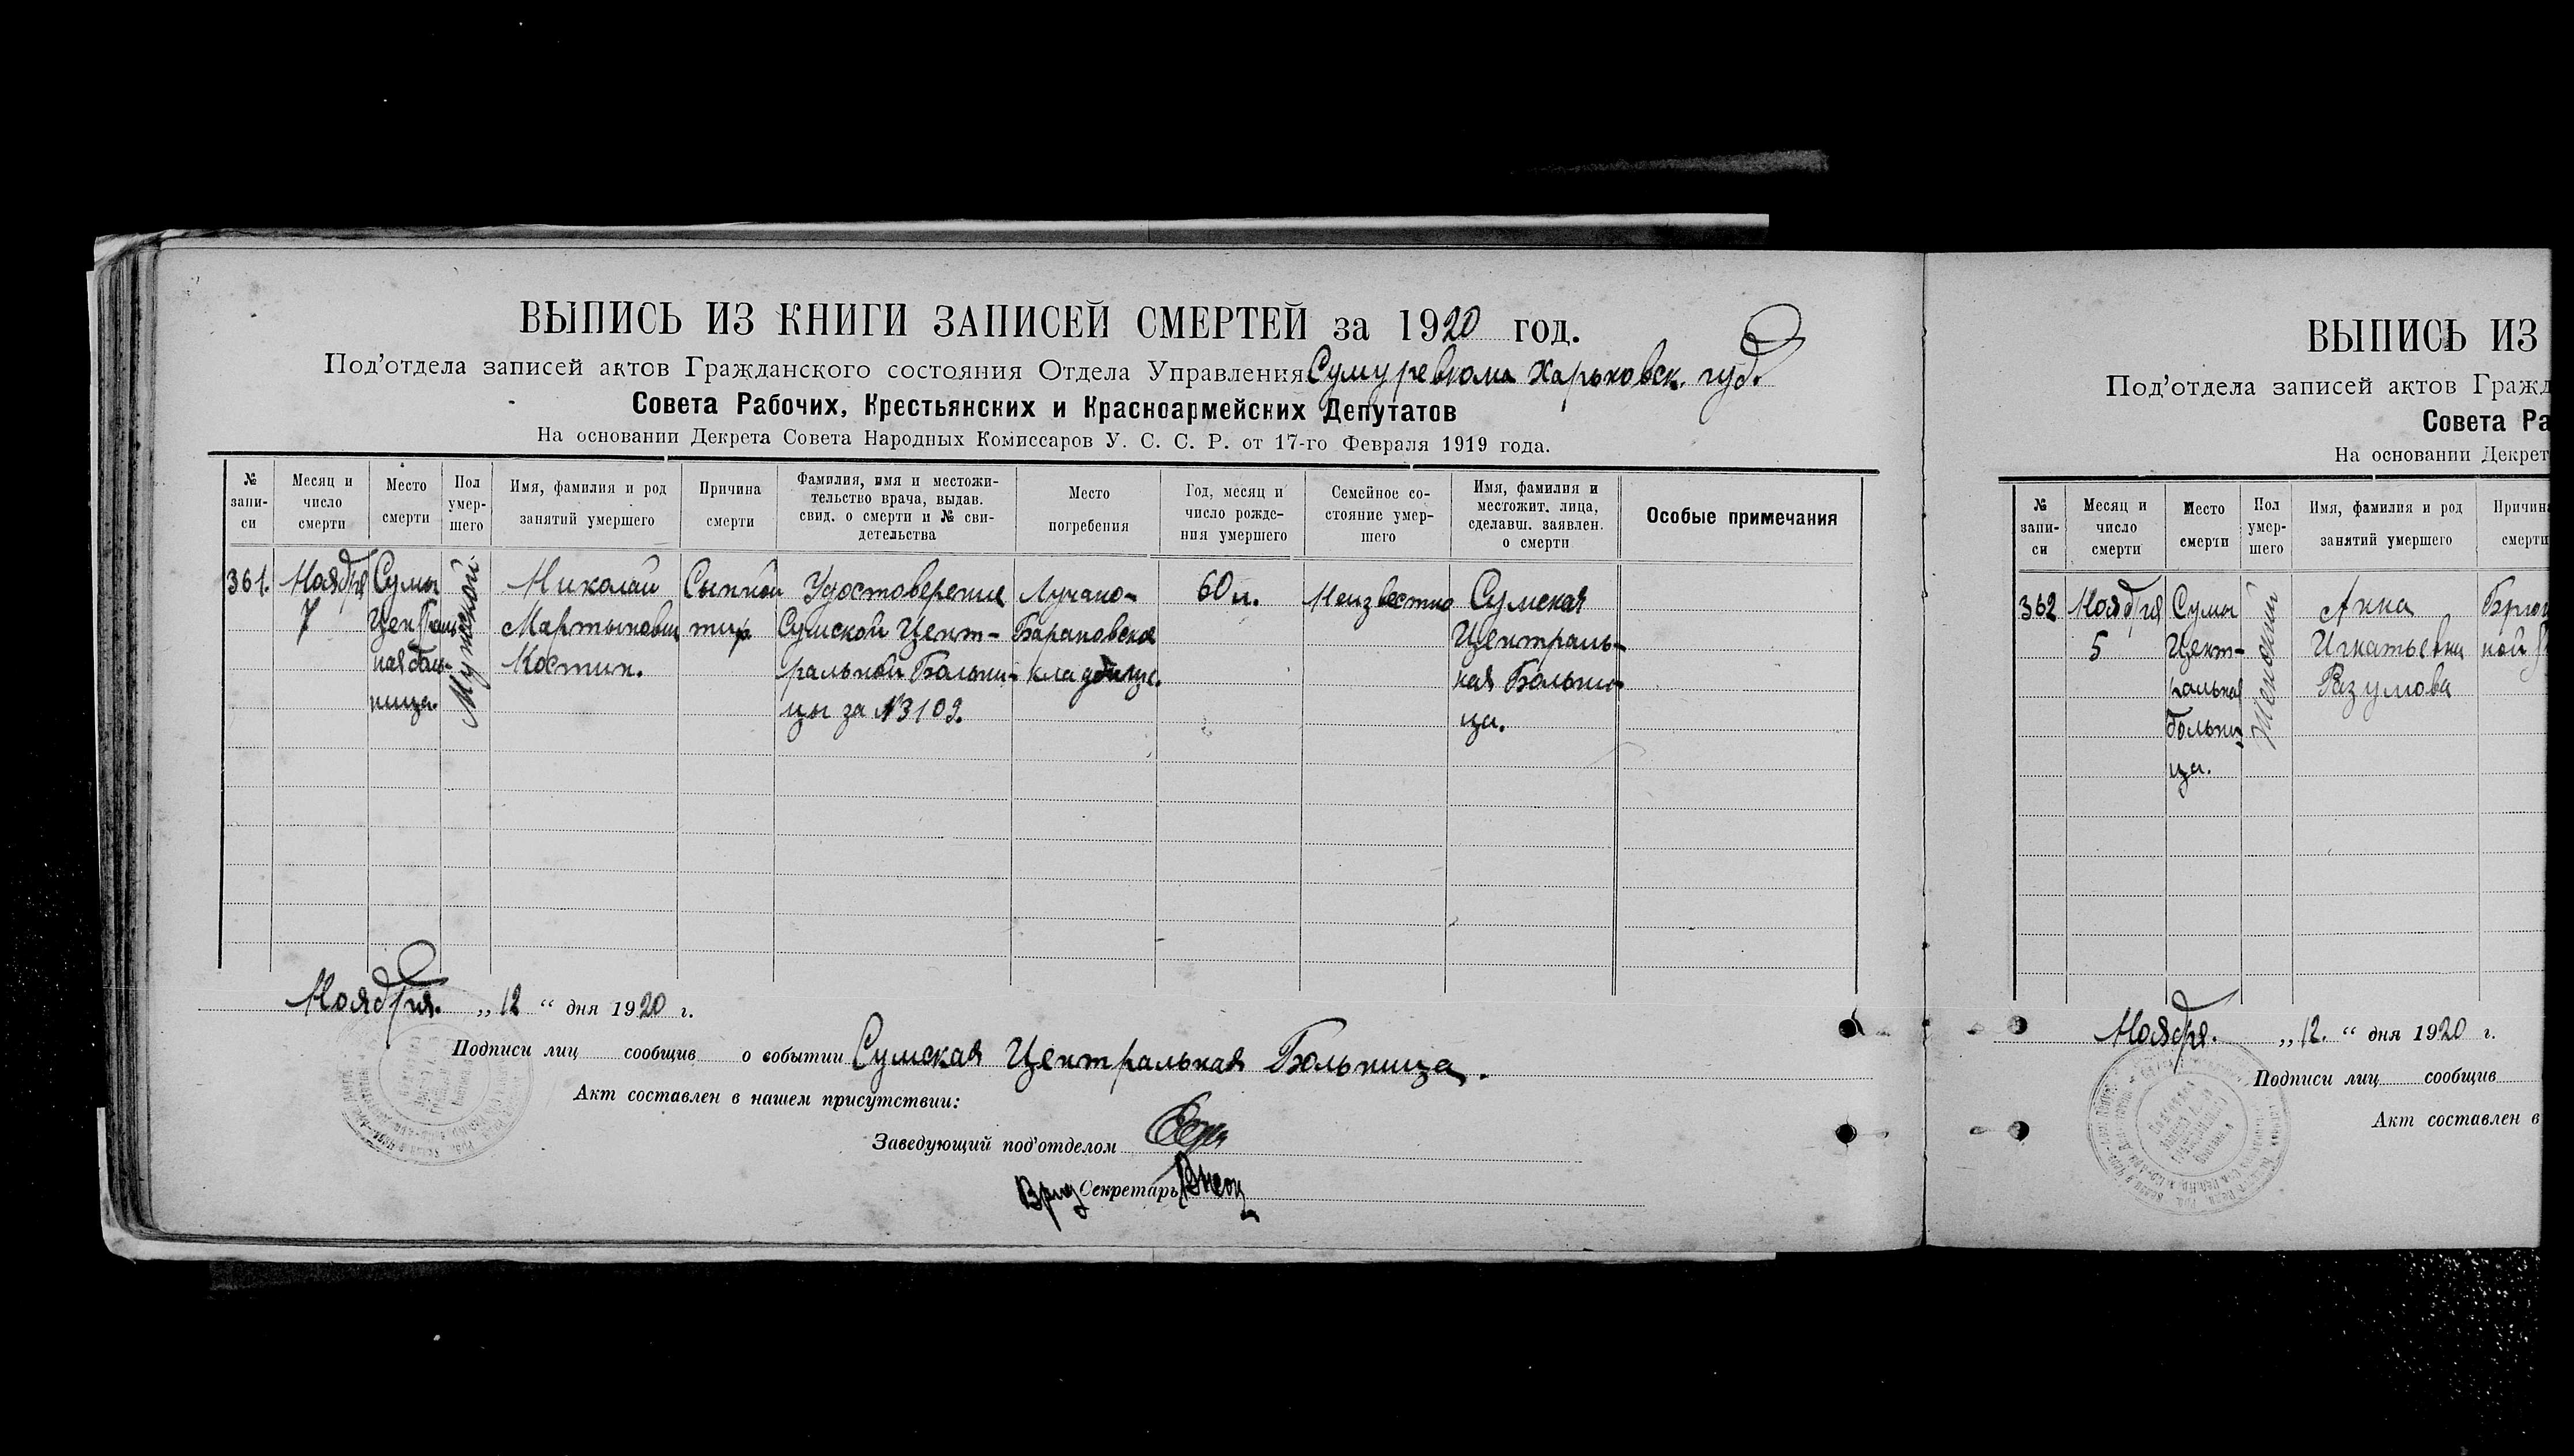 ВЫПИСЬ ИЗ КНИГИ ЗАПИСЕЙ СМЕРТЕЙ за 1920 год.
Под'отдела записей актов Гражданского состояния Отдела Управления Сумуревкома Харьковск. губ.
Совета Рабочих, Крестьянских и Красноармейских Депутатов
На основании Декрета Совета Народных Комиссаров У. С. С. Р. от 17-го Февраля 1919 года.
№ запи-си
Месяц и число смерти
Место смерти
Пол умер-шего
Имя, фамилия и род занятий умершего
Причина смерти
Фамилия, имя и местожи-тельство врача, выдав. свид. о смерти и № сви-детельства
Место погребения
Год, месяц и число рожде-ния умершего
Семейное со-стояние умер-шего
Имя, фамилия и местожит. лица, сделавш. заявлен. о смерти
Особые примечания
361.
Ноября
7
Сумы
Централь-
ная боль-
ница.
Мужской
Николай
Мартынович
Костин.
Сыпной
тиф
Удостоверение
Сумской Цент-
ральной Больни-
цы за №3109.
Лучано-
Барановское
кладбище.
60 л.
Неизвестно
Сумская
Централь-
ная Больни-
ца.
Ноября. „12“ дня 1920 г.
Подписи лиц сообщив о событии Сумская Центральная Больница.
Акт составлен в нашем присутствии:
Заведующий под'отделом
Врид Секретарь
ВЫПИСЬ ИЗ
Под'отдела записей актов Гражд
Совета Ра
На основании Декрет
№ запи-си
Месяц и число смерти
Место смерти
Пол умер-шего
Имя, фамилия и род занятий умершего
Причина смерти
362
Ноября
5
Сумы
Цент-
ральная
больни-
ца.
Женский
Анна
Игнатьевна
Разумова
Брюш
ной
Ноября. „12.“ дня 1920 г.
Подписи лиц сообщив
Акт составлен в